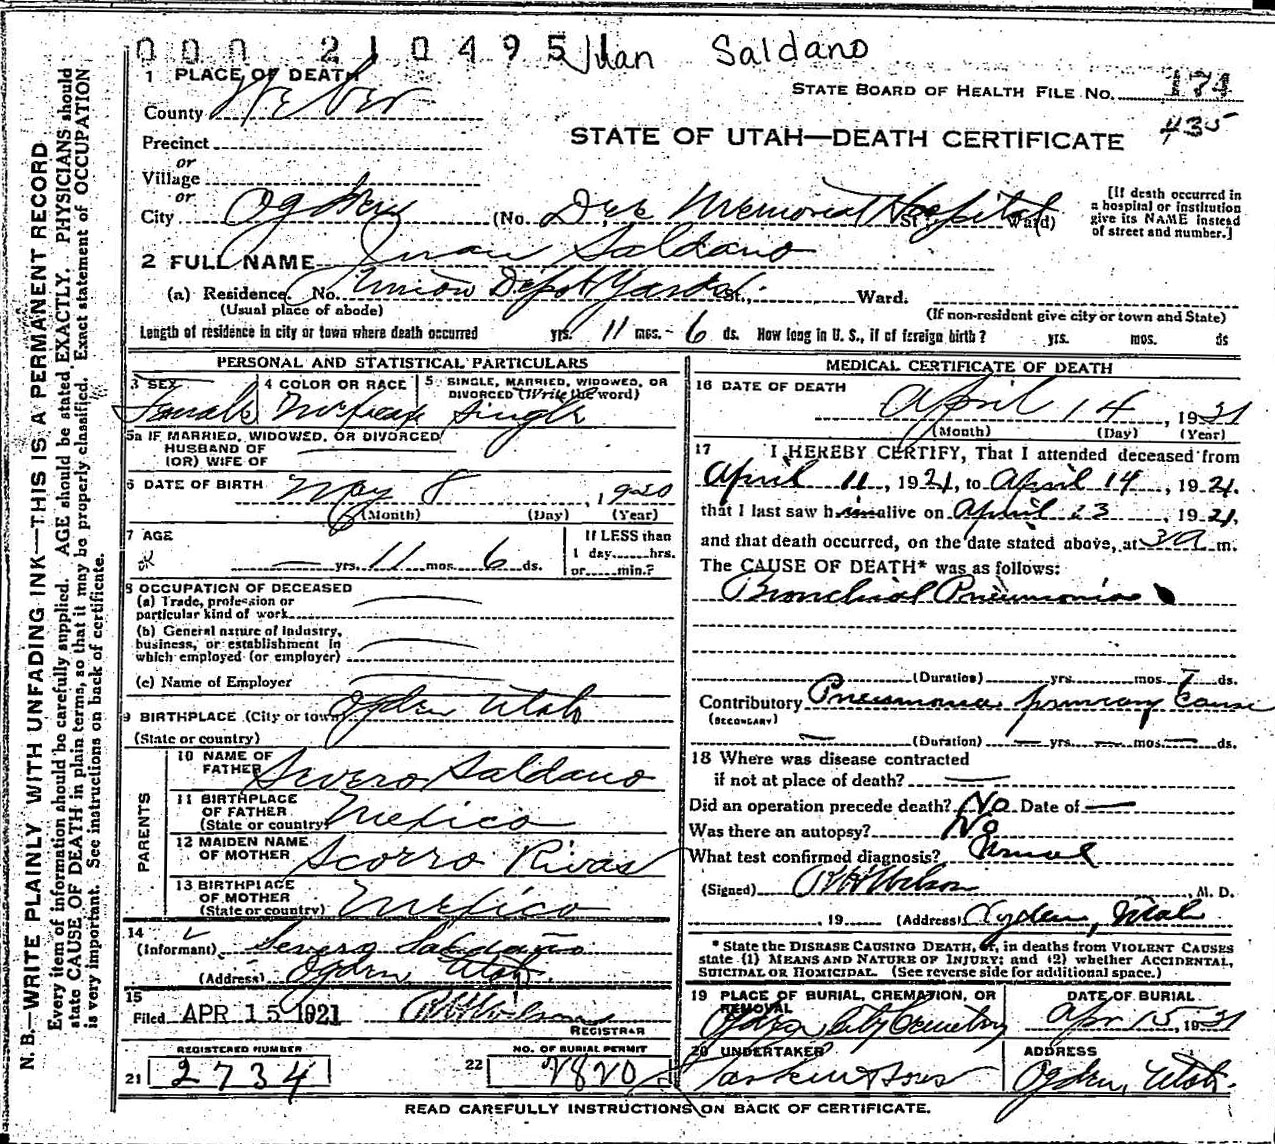 000 210495 Juan Saldano
1 PLACE OF DEATH
STATE BOARD OF HEALTH FILE NO. 174
County Weber
435
STATE OF UTAH—DEATH CERTIFICATE
Precinct
or
Village
or
City Ogden (No. Dee Memorial Hospital St., Ward)
[If death occurred in
a hospital or institution
give its NAME instead
of street and number.]
2 FULL NAME Juan Saldano
(a) Residence. No. Union Depot Yards St., Ward.
(Usual place of abode)
(If non-resident give city or town and State)
Length of residence in city or town where death occurred yrs. 11 mos. 6 ds. How long in U. S., if of foreign birth? yrs. mos. ds
PERSONAL AND STATISTICAL PARTICULARS
3 SEX
Female
4 COLOR OR RACE
Mexican
5 SINGLE, MARRIED, WIDOWED, OR
DIVORCED (Write the word)
Single
5a IF MARRIED, WIDOWED, OR DIVORCED
HUSBAND OF
(OR) WIFE OF
6 DATE OF BIRTH May 8, 1920
(Month) (Day) (Year)
7 AGE
— yrs. 11 mos. 6 ds.
If LESS than
1 day......hrs.
or......min.?
8 OCCUPATION OF DECEASED
(a) Trade, profession or
particular kind of work
(b) General nature of industry,
business, or establishment in
which employed (or employer)
(c) Name of Employer
9 BIRTHPLACE (City or town) Ogden Utah
(State or country)
PARENTS
10 NAME OF
FATHER Severo Saldano
11 BIRTHPLACE
OF FATHER
(State or country) Mexico
12 MAIDEN NAME
OF MOTHER Scorro Rivas
13 BIRTHPLACE
OF MOTHER
(State or country) Mexico
14
(Informant) Severo Saldaño
(Address) Ogden Utah.
15
Filed APR 15 1921 R W Wilson
REGISTRAR
REGISTERED NUMBER
21 2734
NO. OF BURIAL PERMIT
22 V820
MEDICAL CERTIFICATE OF DEATH
16 DATE OF DEATH
April 14, 1921
(Month) (Day) (Year)
17 I HEREBY CERTIFY, That I attended deceased from
April 11, 1921, to April 14, 1921.
that I last saw him alive on April 23, 1921,
and that death occurred, on the date stated above, at 3a m.
The CAUSE OF DEATH* was as follows:
Bronchial Pneumonia
(Duration) yrs. mos. 7 ds.
Contributory Pneumonia primary cause
(SECONDARY)
(Duration) — yrs. — mos. — ds.
18 Where was disease contracted
if not at place of death? —
Did an operation precede death? No Date of —
Was there an autopsy? No
What test confirmed diagnosis? Usual
(Signed) R W Wilson, M. D.
, 19 (Address) Ogden, Utah
* State the DISEASE CAUSING DEATH, or, in deaths from VIOLENT CAUSES
state (1) MEANS AND NATURE OF INJURY; and (2) whether ACCIDENTAL,
SUICIDAL OR HOMICIDAL. (See reverse side for additional space.)
19 PLACE OF BURIAL, CREMATION, OR
REMOVAL
Ogden City Cemetery
DATE OF BURIAL
Apr 15, 1921
20 UNDERTAKER
Larkin & Sons
ADDRESS
Ogden, Utah.
READ CAREFULLY INSTRUCTIONS ON BACK OF CERTIFICATE.
N. B.—WRITE PLAINLY WITH UNFADING INK—THIS IS A PERMANENT RECORD
Every item of information should be carefully supplied. AGE should be stated EXACTLY. PHYSICIANS should
state CAUSE OF DEATH in plain terms, so that it may be properly classified. Exact statement of OCCUPATION
is very important. See instructions on back of certificate.